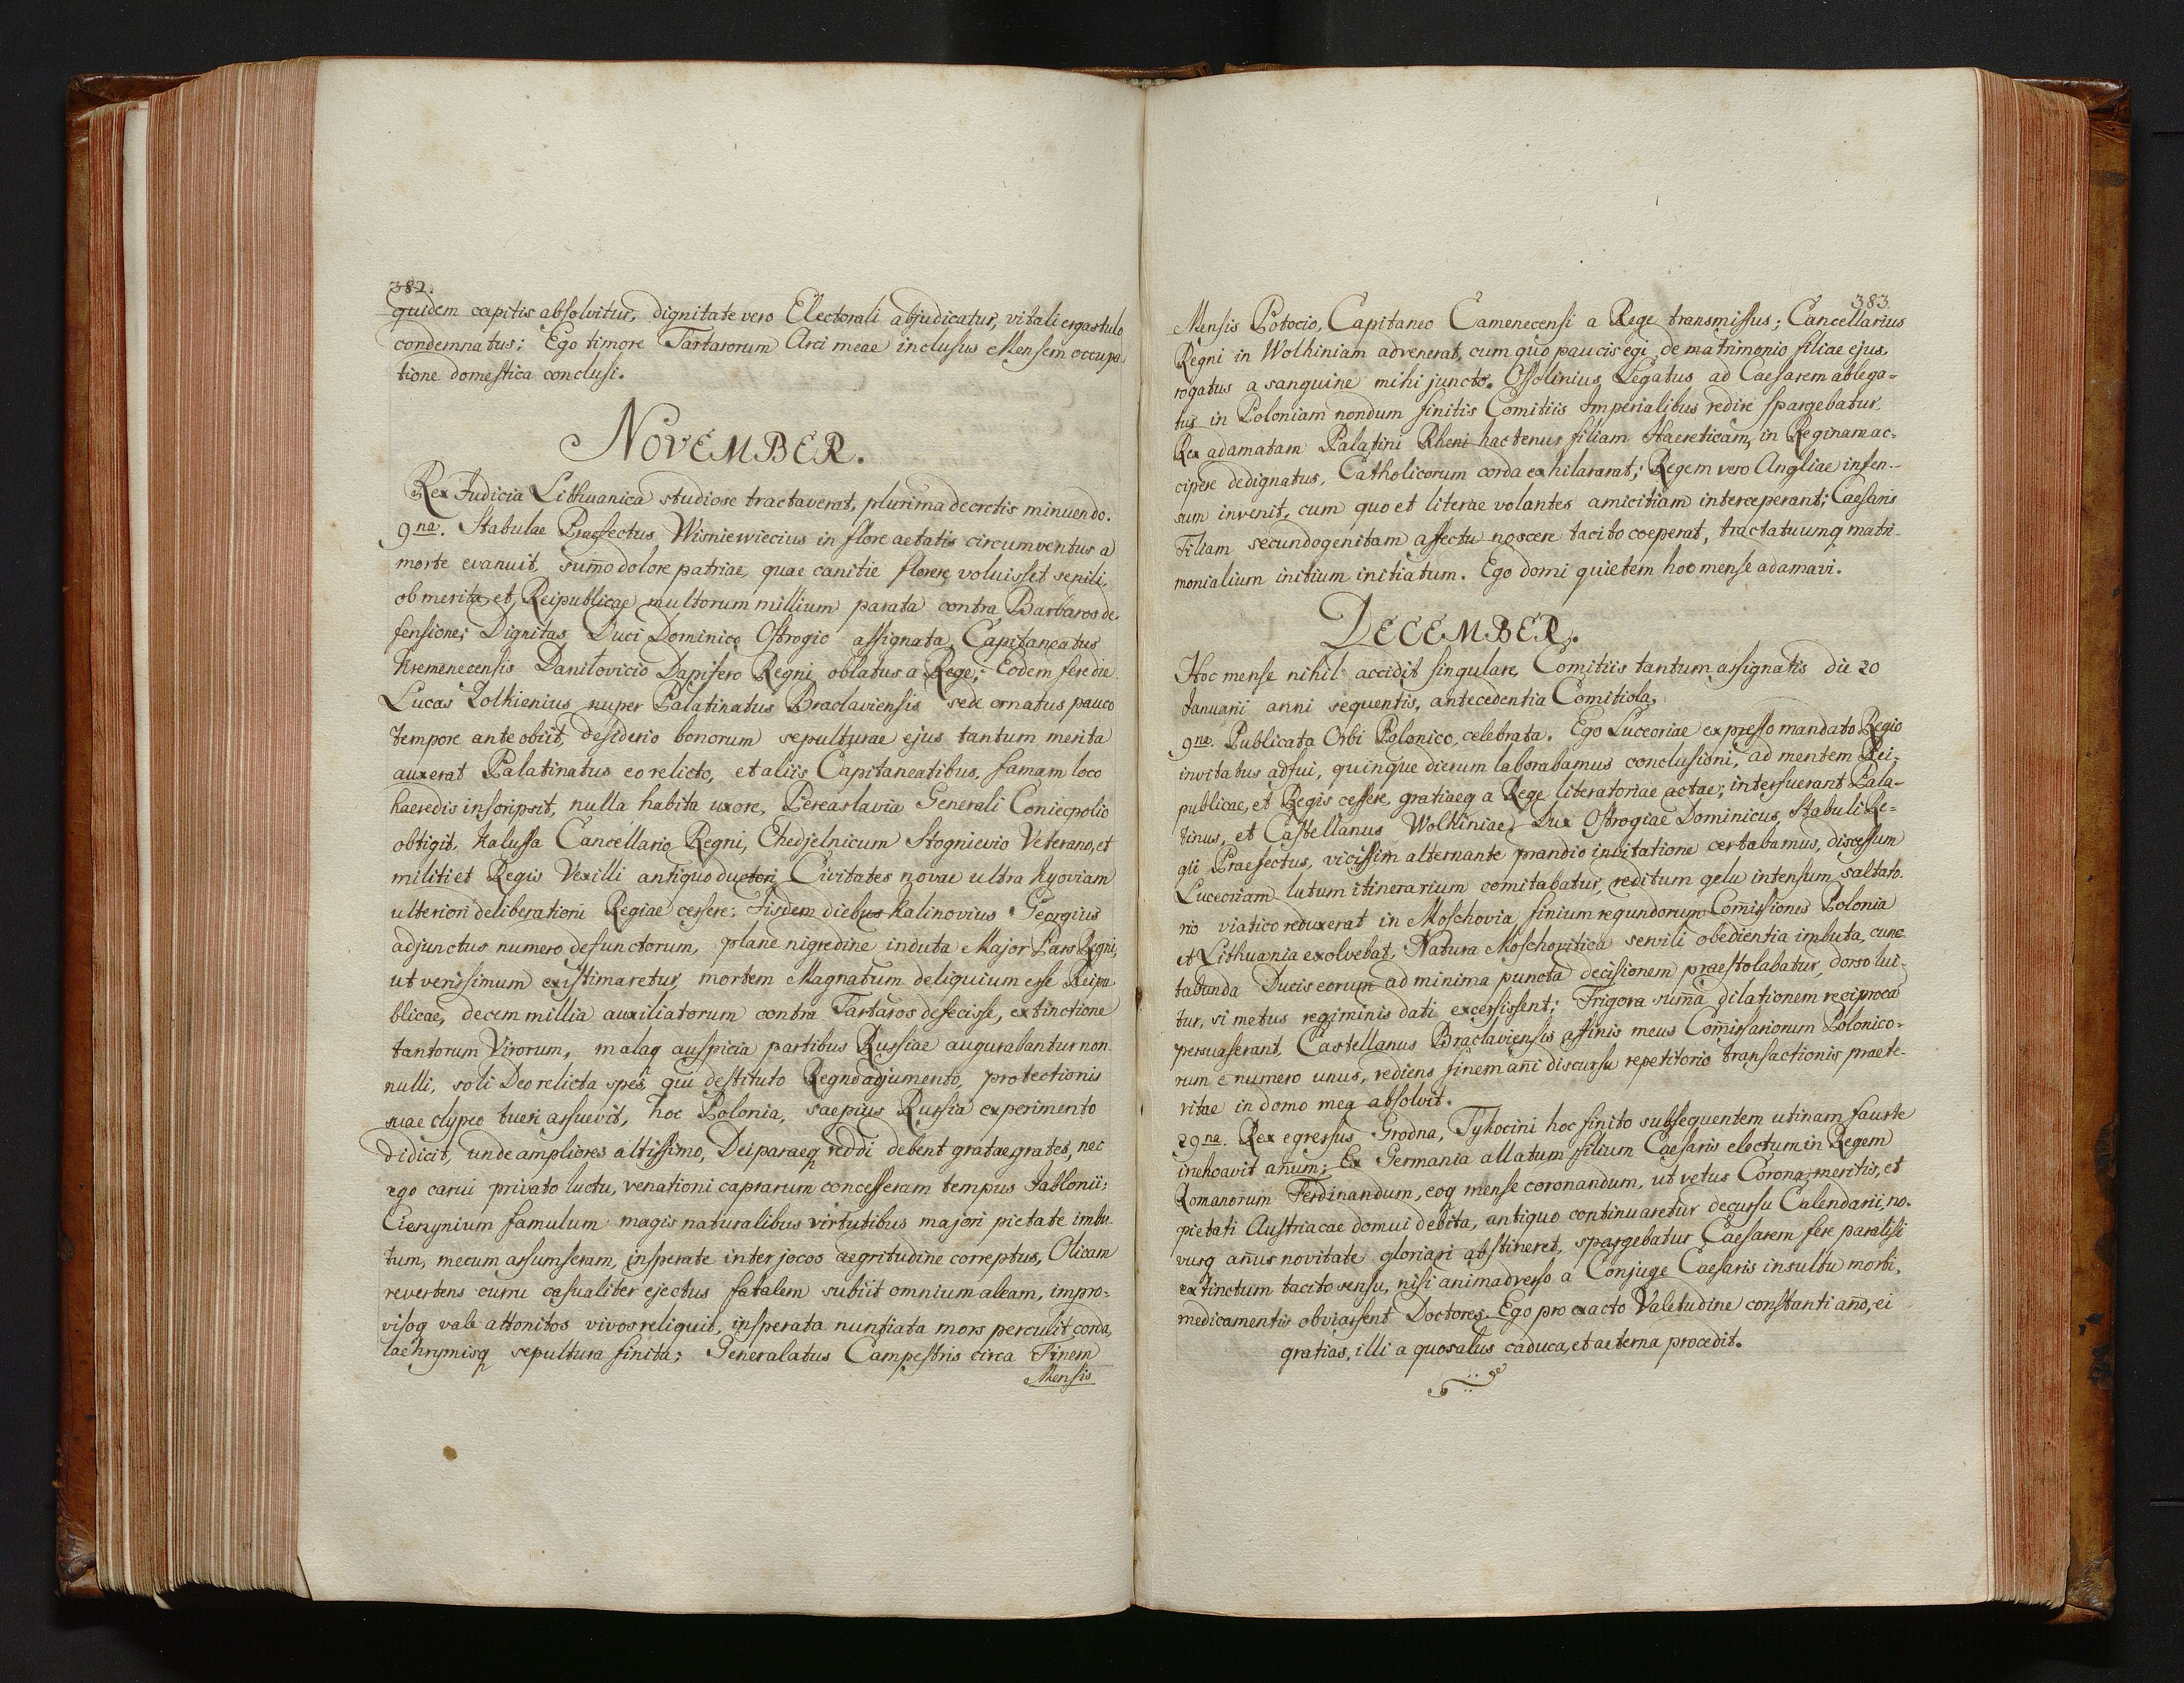 382.
quidem capitis absolvitur, dignitate vero Electorali abjudicatur, vitali ergastulo
condemnatus: Ego timore Tartarorum Arci meae inclusus Mensem occupa
tione domestica conclusi.
NOVEMBER.
Rex Judicia Lithuanica studiose tractaverat, plurima decretis minuendo.
9na. Stabulae Praefectus Wisniewiecius in flore aetatis circumventus a
morte evanuit, sum̄o dolore patriae, quae canitie florere voluisset senili,
ob merita, et Reipublicae multorum millium parata contra Barbaros de
fensione; Dignitas Duci Dominico Ostrogio assignata, Capitaneatus
Kremenecensis Daniłovicio Dapifero Regni oblatus a Rege; Eodem fere die
Lucas Zolkienius nuper Palatinatus Braclaviensis sede ornatus pauco
tempore ante obiit, desiderio bonorum sepulturae ejus tantum merita
auxerat Palatinatus eo relicto, et aliis Capitaneatibus, famam loco
haeredis inscripsit, nulla habita uxore, Pereaslavia Generali Coniecpolio
obtigit, Kalussa Cancellario Regni, Chedjelnicum Stognievio Veterano, et
militi et Regis Vexilli antiquo ductori, Civitates novae ultra Kyoviam
ulteriori deliberationi Regiae cessere: Iisdem diebus Kalinovius Georgius
adjunctus numero defunctorum, plane nigredine induta Major Pars Regni,
ut verissimum existimaretur, mortem Magnatum deliquium esse Reipu
blicae, decem millia auxiliatorum contra Tartaros defecisse, extinctione
tantorum Virorum, malaq auspicia partibus Russiae augurabantur non
nulli, soli Deo relicta spes, qui destituto Regno adjumento, protectionis
suae clypeo tueri assuevit, hoc Polonia, saepius Russia experimento
didicit, unde ampliores altissimo, Deiparaeq reddi debent gratae grates, nec
ego carui privato luctu, venationi caprarum concesseram tempus Jablonii;
Cieszynium famulum magis naturalibus virtutibus majori pietate imbu
tum, mecum assumseram, insperate inter jocos aegritudine correptus, Olicam
revertens curru casualiter ejectus fatalem subiit omnium aleam, impro-
visoq vale attonitos vivos reliquit, insperata nuntiata mors perculit corda,
lachrymisq sepultura finita; Generalatus Campestris circa Finem
Mensis
383.
Mensis Potocio, Capitaneo Camenecensi a Rege transmissus; Cancellarius
Regni in Wolhiniam advenerat, cum quo paucis egi de matrimonio filiae ejus,
rogatus a sanguine mihi juncto. Ossolinius Legatus ad Caesarem ablega-
tus in Poloniam nondum finitis Comitiis Imperialibus redire spargebatur.
Rex adamatam Palatini Rheni hactenus filiam Haereticam, in Reginam ac-
cipere dedignatus, Catholicorum corda exhilararat; Regem vero Angliae infen-
sum invenit, cum quo et literae volantes amicitiam interceperant; Caesaris
Filiam secundogenitam affectu noscere tacito coeperat, tractatuumq matri-
monialium initium initiatum. Ego domi quietem hoc mense adamavi.
DECEMBER.
Hoc mense nihil accidit singulare, Comitiis tantum assignatis die 20
Januarii anni sequentis, antecedentia Comitiola,
9na. Publicata Orbi Polonico, celebrata. Ego Luceoriae expresso mandato Regio
invitatus adfui, quinque dierum laborabamus conclusioni, ad mentem Rei-
publicae, et Regis cessere, gratiaeq a Rege literatoriae actae; interfuerant Pala-
tinus, et Castellanus Wolhiniae, Dux Ostrogiae Dominicus, Stabuli Re-
gii Praefectus, vicissim alternante prandio invitatione certabamus, discessum
Luceoriam lutum itinerarium comitabatur, reditum gelu intensum, saltato-
rio viatico reduxerat in Moschovia finium regundorum Com̄issiones Polonia
et Lithuania exolvebat, Natura Moschovitica servili obedientia imbuta, cunc
tabunda Ducis eorum ad minima puncta decisionem praestolabatur, dorso lui-
tur, si metus regiminis dati excessissent; Frigora sum̄a dilationem reciproca
persuaserant, Castellanus Braclaviensis affinis meus Com̄issariorum Polonico-
rum e numero unus, rediens finem an̄i discursu repetitorio transactionis praete-
ritae in domo mea absolvit.
29na. Rex egressus Grodna, Tykocini hoc finito subsequentem utinam fauste
inchoavit an̄um; Ex Germania allatum filium Caesaris electum in Regem
Romanorum Ferdinandum, eoq mense coronandum, ut vetus Corona, meritis, et
pietati Austriacae domui debita, antiquo continuaretur decursu Calendarii, no-
vusq an̄us novitate gloriari abstineret, spargebatur Caesarem fere paralisi
extinctum tacito sensu, nisi animadverso a Conjuge Caesaris insultu morbi,
medicamentis obviassent Doctores. Ego pro exacto Valetudine constanti an̄o, ei
gratias, illi a quo salus caduca, et aeterna procedit.